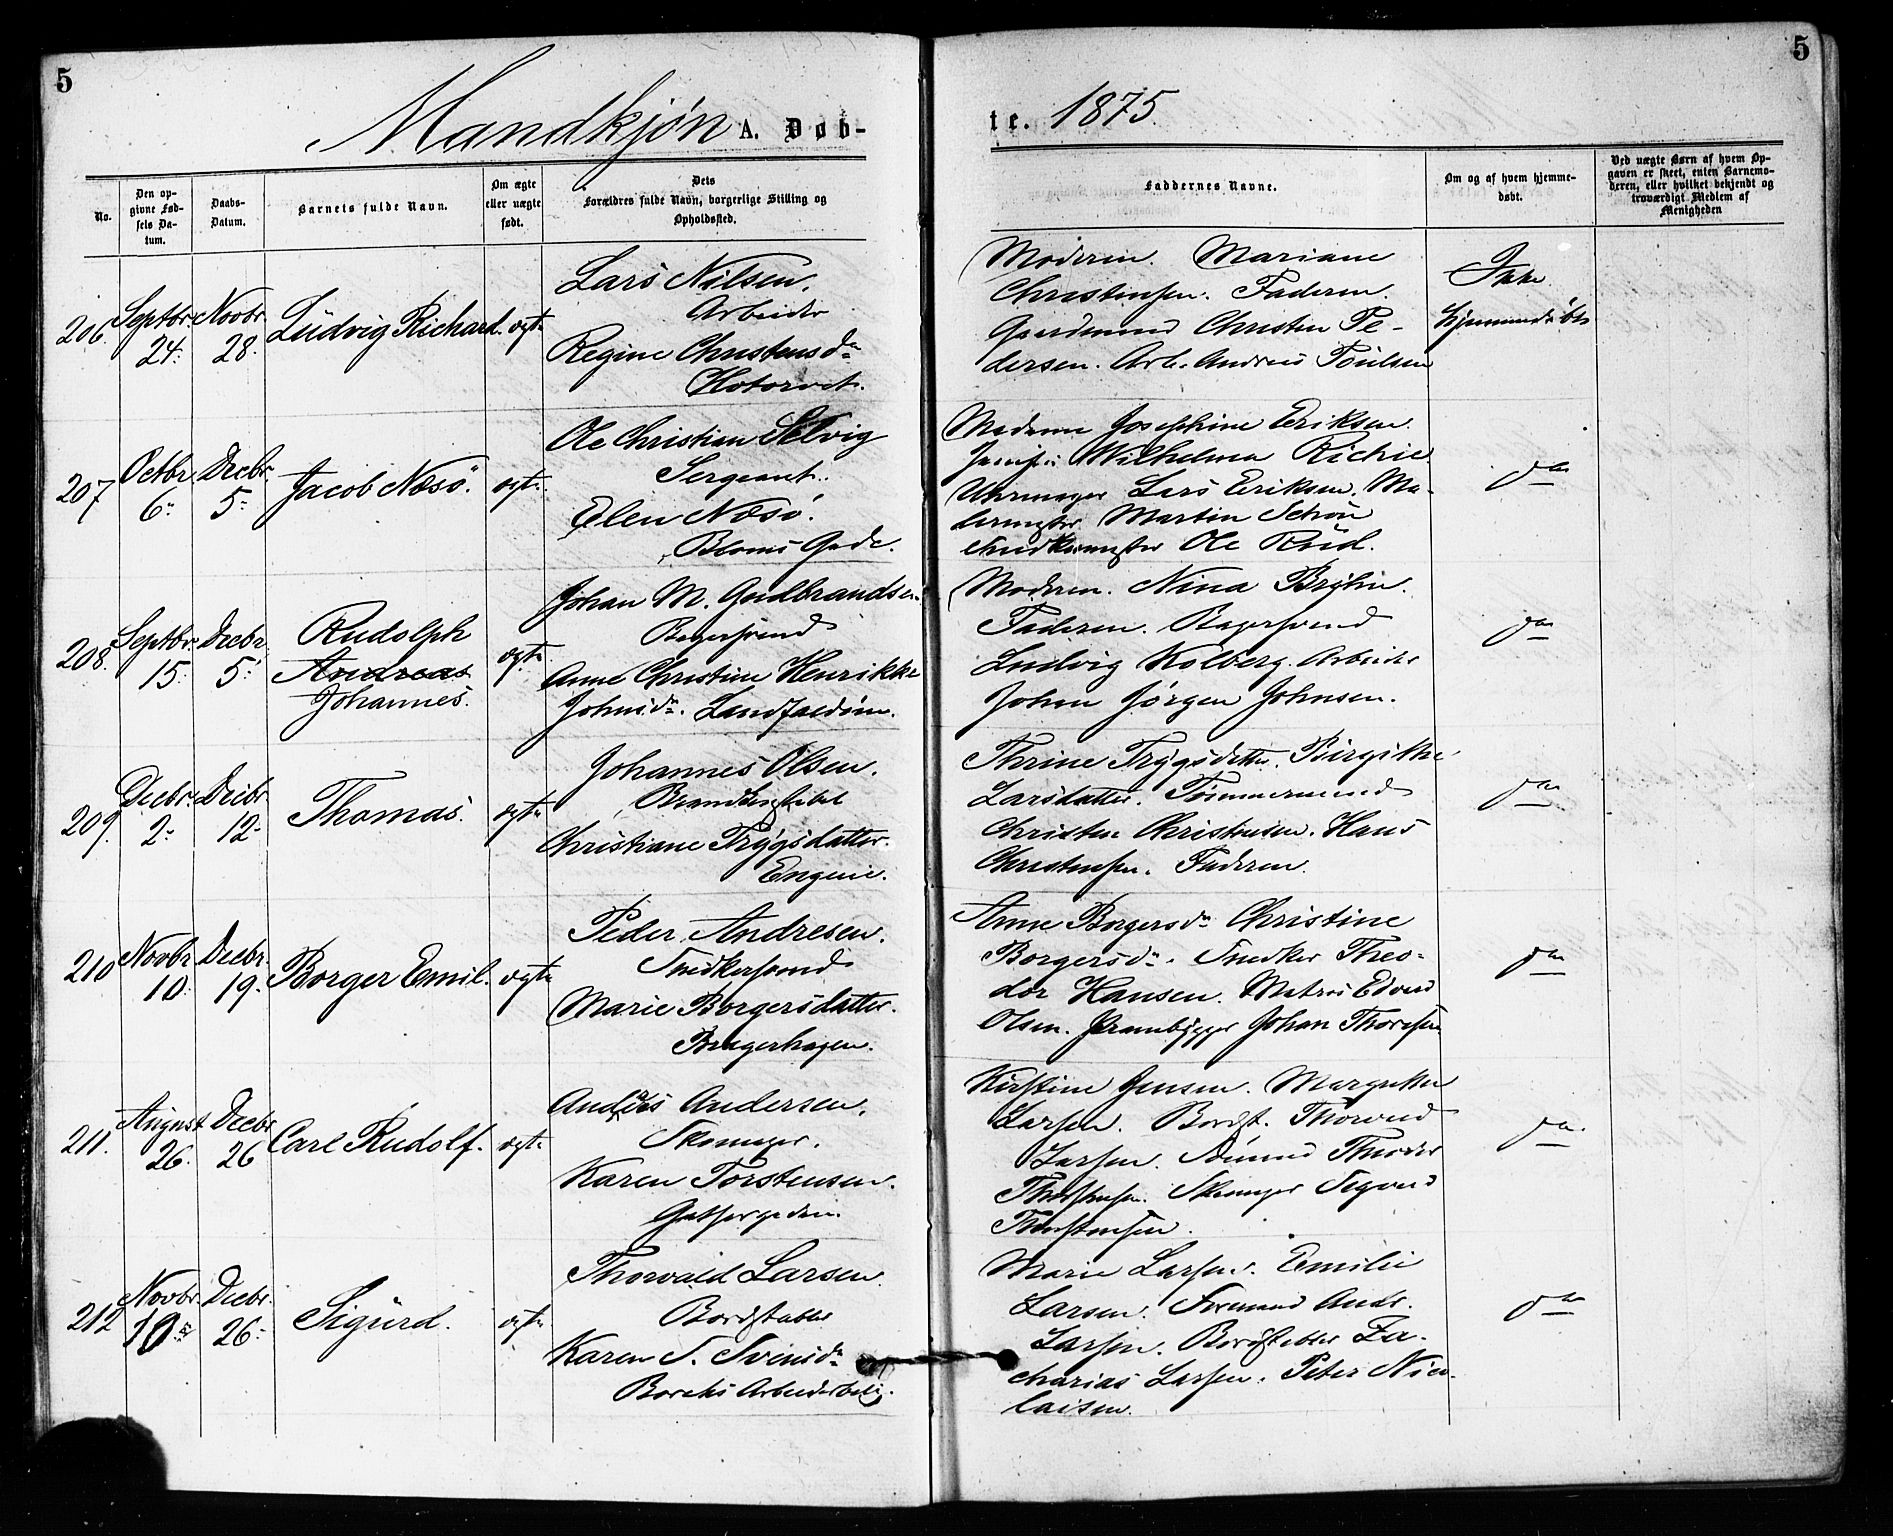 5
5
Mandkjøn A. Døb-
te. 1875.
No.
Den op-
givne Fød-
sels Da-
tum.
Daabs-
Datum.
Barnets fulde Navn.
Om ægte
eller uægte
født.
Dets
Forældres fulde Navn, borgerlige Stilling og
Opholdssted.
Faddernes Navne.
Om og af hvem hjemme-
døbt.
Ved uægte Børn af hvem Op-
gaven er skeet, enten Barnemo-
deren, eller hvilket bekjendt og
troværdigt Medlem af
Menigheden
206.
Septbr.
24.
Novbr.
28.
Ludvig Richard.
ægte
Lars Nilsen.
Arbeider
Regine Christensd.
Hotorvet.
Moderen. Mariane
Christensen. Faderen.
Gaardmand Christen Pe-
dersen. Arb. Andreas Poulsen
Ikke
hjemmedøbt
207
Octbr
6.
Decbr.
5.
Jacob Næsø.
ægte
Ole Christian Selvig
Sergeant.
Elen Næsø.
Bloms Gade.
Madame Josephine Eriksen.
Wilhelma Richie.
Uhrmager Lars Eriksen. Ma-
lermester Martin Schøn
Snedkermester Ole Roed.
do
208.
Septbr.
15.
Decbr.
5.
Rudolph
Andreas
Johannes.
ægte
Johan M. Gudbrandsen
Bagersvend
Anne Christine Henrikke
Johnsd. Landfaldøen.
Moderen. Nina Brylin.
Faderen. Bagersvend
Ludvig Kolberg. Arbeider
Johan Jørgen Johnsen.
do
209.
Decbr.
2.
Decbr.
12.
Thomas.
ægte
Johannes Olsen.
Brandkonstabel
Christiane Trygsdatter.
Engene.
Thrine Trygsdatter. Birgitte
Larsdatter. Tømmermand
Christen Christensen. Hans
Christensen. Faderen.
do
210
Novbr
10.
Decbr.
19.
Borger Emil.
ægte
Peder Andresen.
Snedkersvend
Marie Borgersdatter.
Bragerhagen.
Anne Borgersd. Christine
Borgersd. Snedker Theo-
dor Hansen. Matros Edvard
Olsen. Prambygger Johan Thoresen
do
211.
August
26.
Decbr
26
Carl Rudolf.
ægte
Andreas Andersen.
Skomager.
Karen Torstensen.
Kirstine Jensen. Margrethe
Larsen. Bordst. Thorvald
Larsen. Thorstensen. Skomager Sigvard
Thorstensen.
do
212
Novbr.
10
Decbr.
26.
Sigurd.
ægte
Thorvald Larsen.
Bordstabler
Karen S. Svensd.
Borchs Arbeiderbolig.
Marie Larsen. Emilie
Larsen. Formand Andr.
Larsen. Bordstabler Za-
charias Larsen. Peter Nico-
laisen.
do